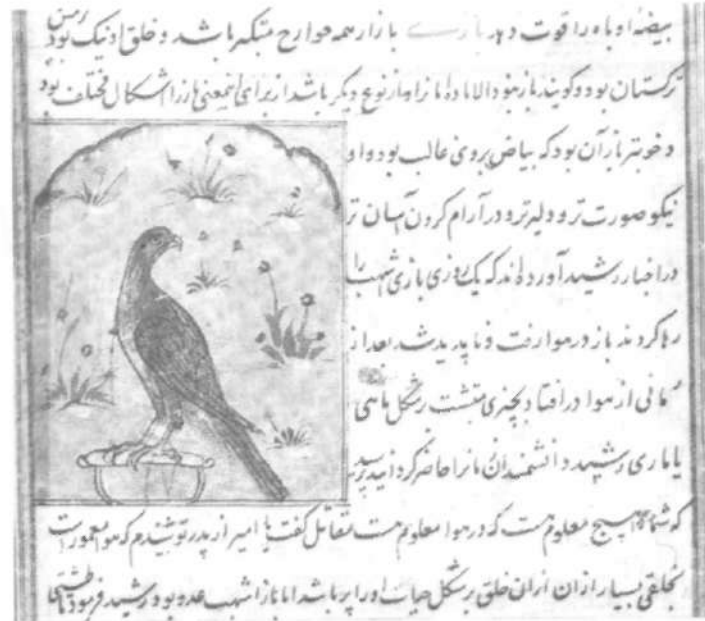 بیضه او باه را قوت دهد بازی باز از همه جوارح متکبر باشد و خلق او نیک بود زمین
ترکستان بود و گویند باز نبود الا ماده نر از نوع دیگر باشد از برای این معنی باز را اشکال مختلف بود
و خوبتر باز آن بود که بیاض بروی غالب بود و او
نیکو صورت تر و دلیر تر و در آرام کردن آسان تر
در اخبار رشید آورده اند که یک روزی بازی اشهب را
رها کردند باز در هوا رفت و ناپدید شد بعد از
زمانی از هوا در افتاد بچیزی متشبث بر شکل ماهی
یا ماری رشید دانشمندان را حاضر گردانید پرسید
که شما را هیچ معلوم هست که در هوا معلوم هست مقاتل گفت یا امیر از پدر تو شنیدم که هوا معمورست
بخلقی بسیار از آن ازان خلق بر شکل حیات اورا پر باشد اما باز اشهب عدو بود رشید فرمود تا طشتی